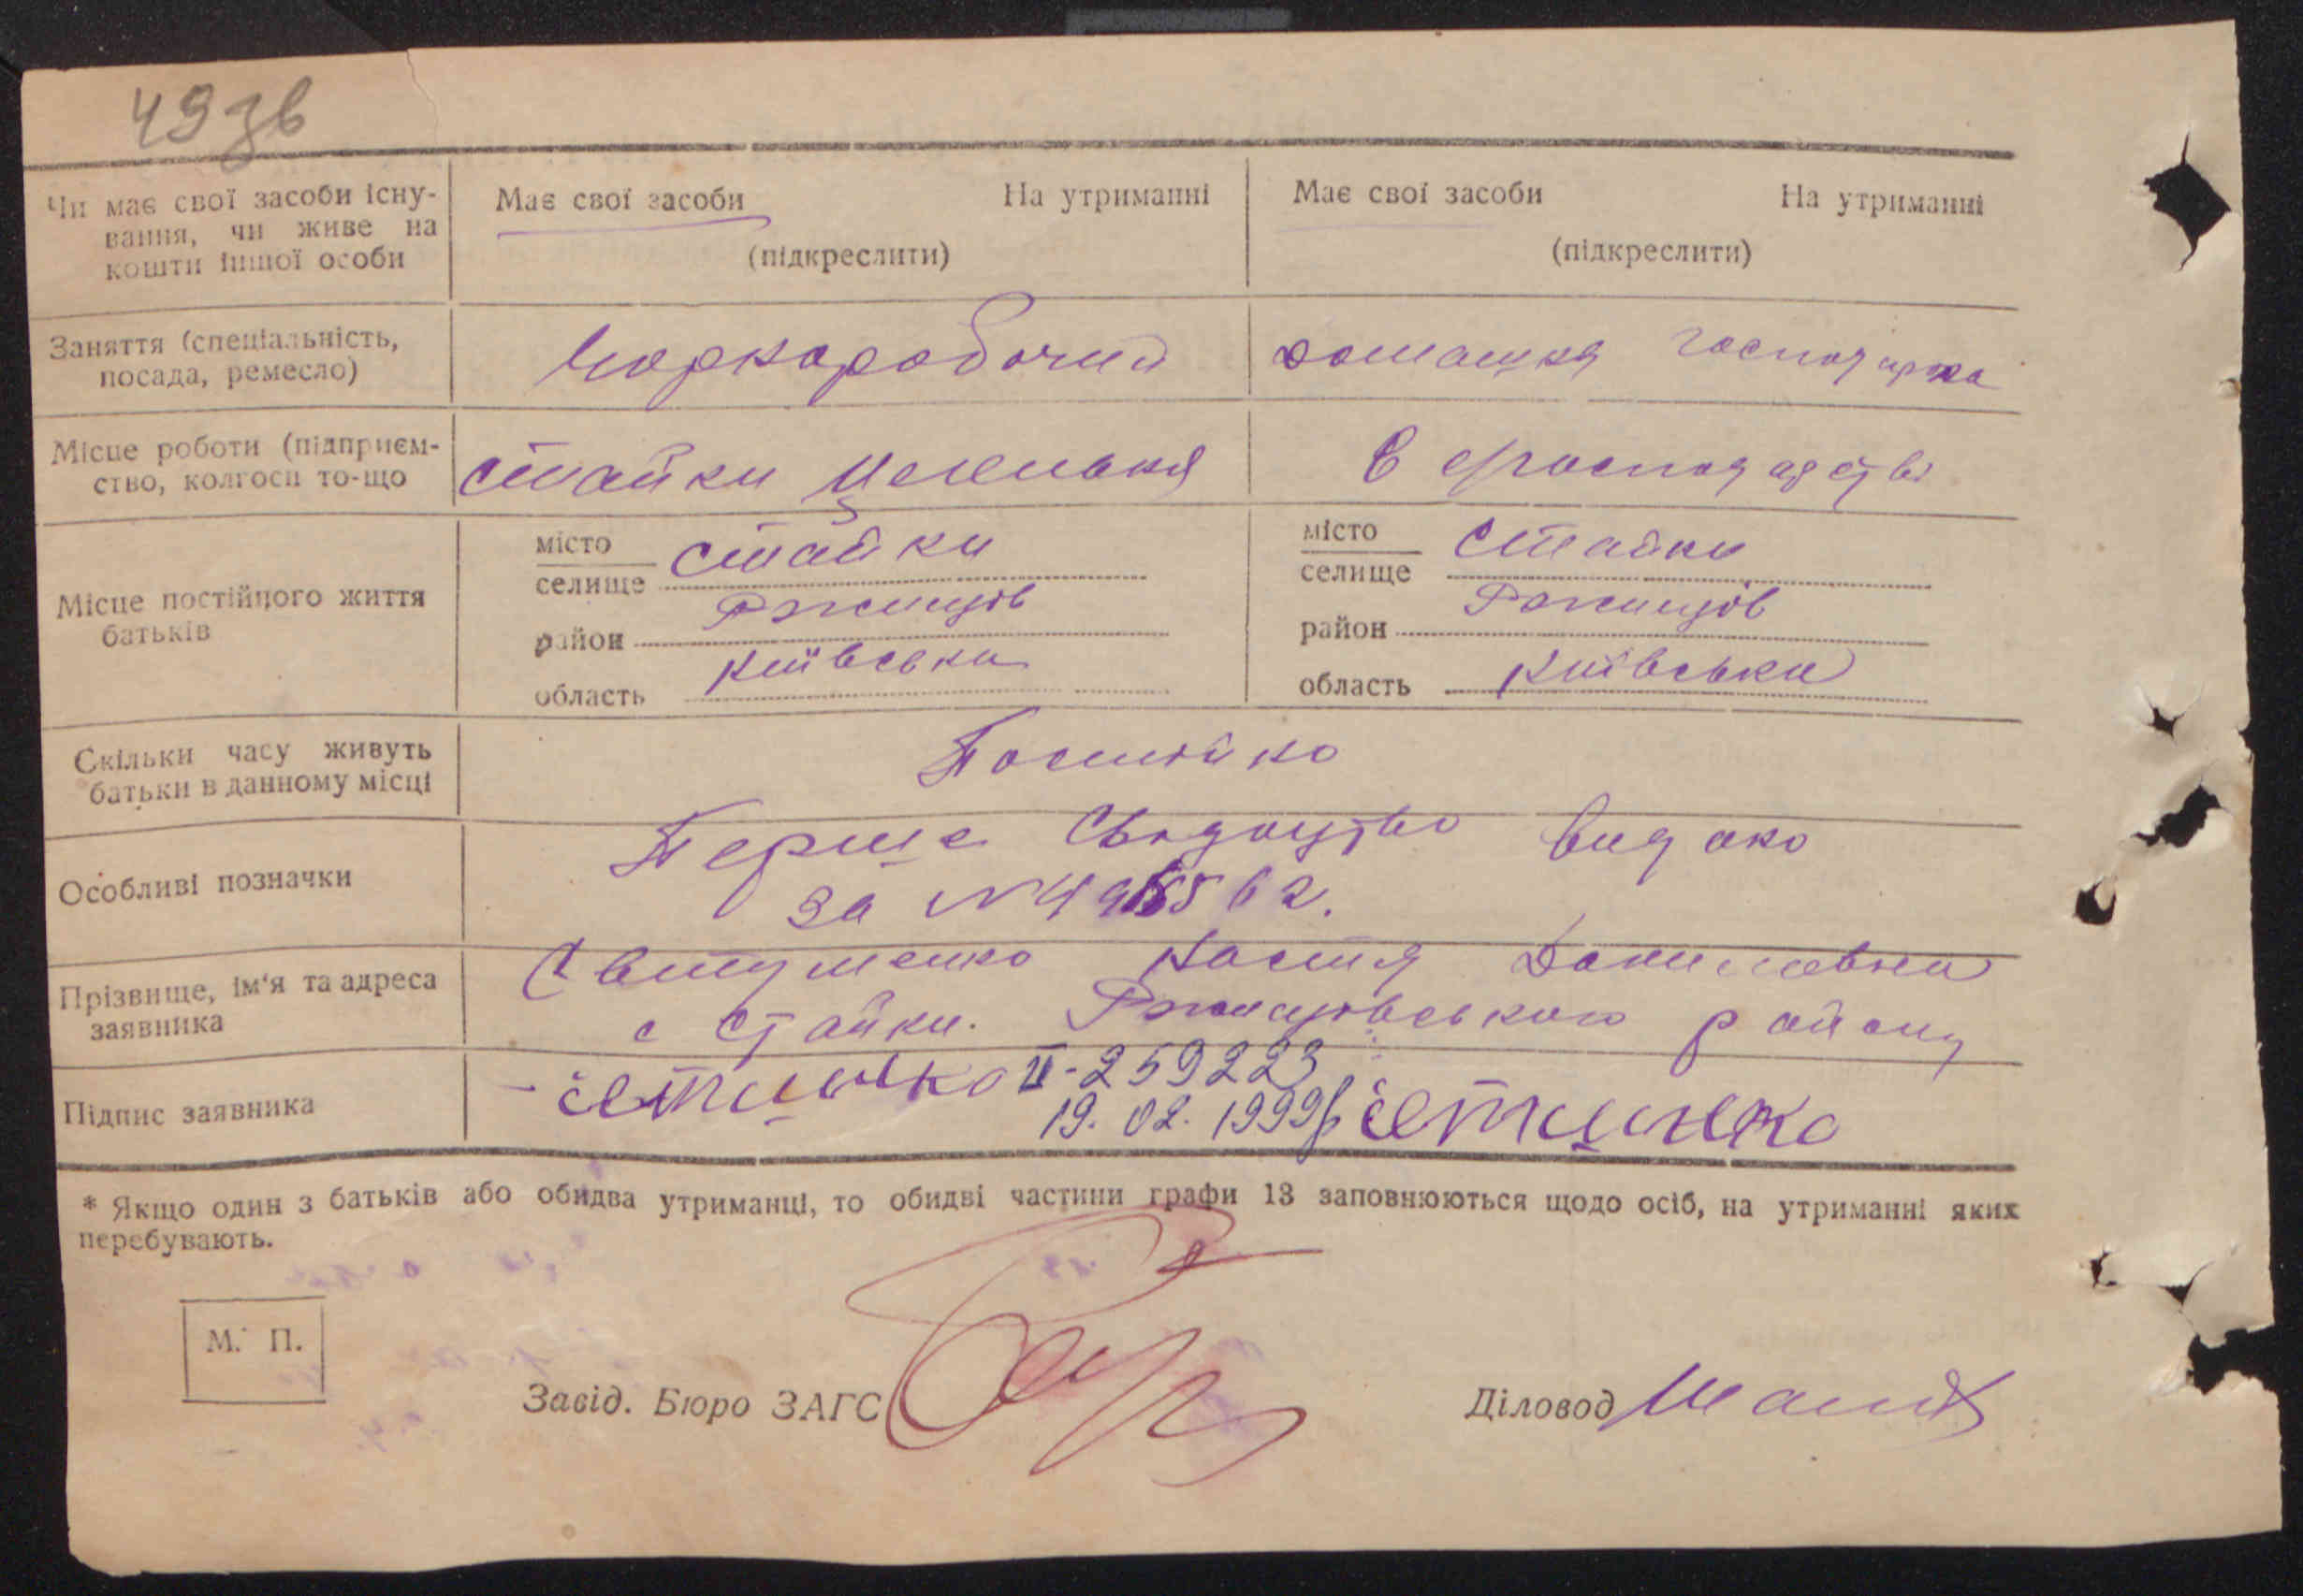 49зв
Чи має свої засоби існу-
вання, чи живе на
кошти іншої особи
Має свої засоби На утриманні
(підкреслити)
Має свої засоби На утриманні
(підкреслити)
Заняття (спеціальність,
посада, ремесло)
Чоркоробочий
домашня господарка
Місце роботи (підприєм-
ство, колгосп то-що
Стайки Цегельня
В господарстві
Місце постійного життя
батьків
місто
селище Стайки
район Ржищів
область Київська
місто
селище Стайки
район Ржищів
область Київська
Скільки часу живуть
батьки в данному місці
Постійно
Особливі позначки
Перше Свідоцтво видано
за №
Прізвище, ім'я та адреса
заявника
Настя Даниловна
с Стайки. Ржищівського району
Підпис заявника
II-259223
19.02.1999р
* Якщо один з батьків або обидва утриманці, то обидві частини графи 13 заповнюються щодо осіб, на утриманні яких
перебувають.
М. П.
Завід. Бюро ЗАГС
Діловод